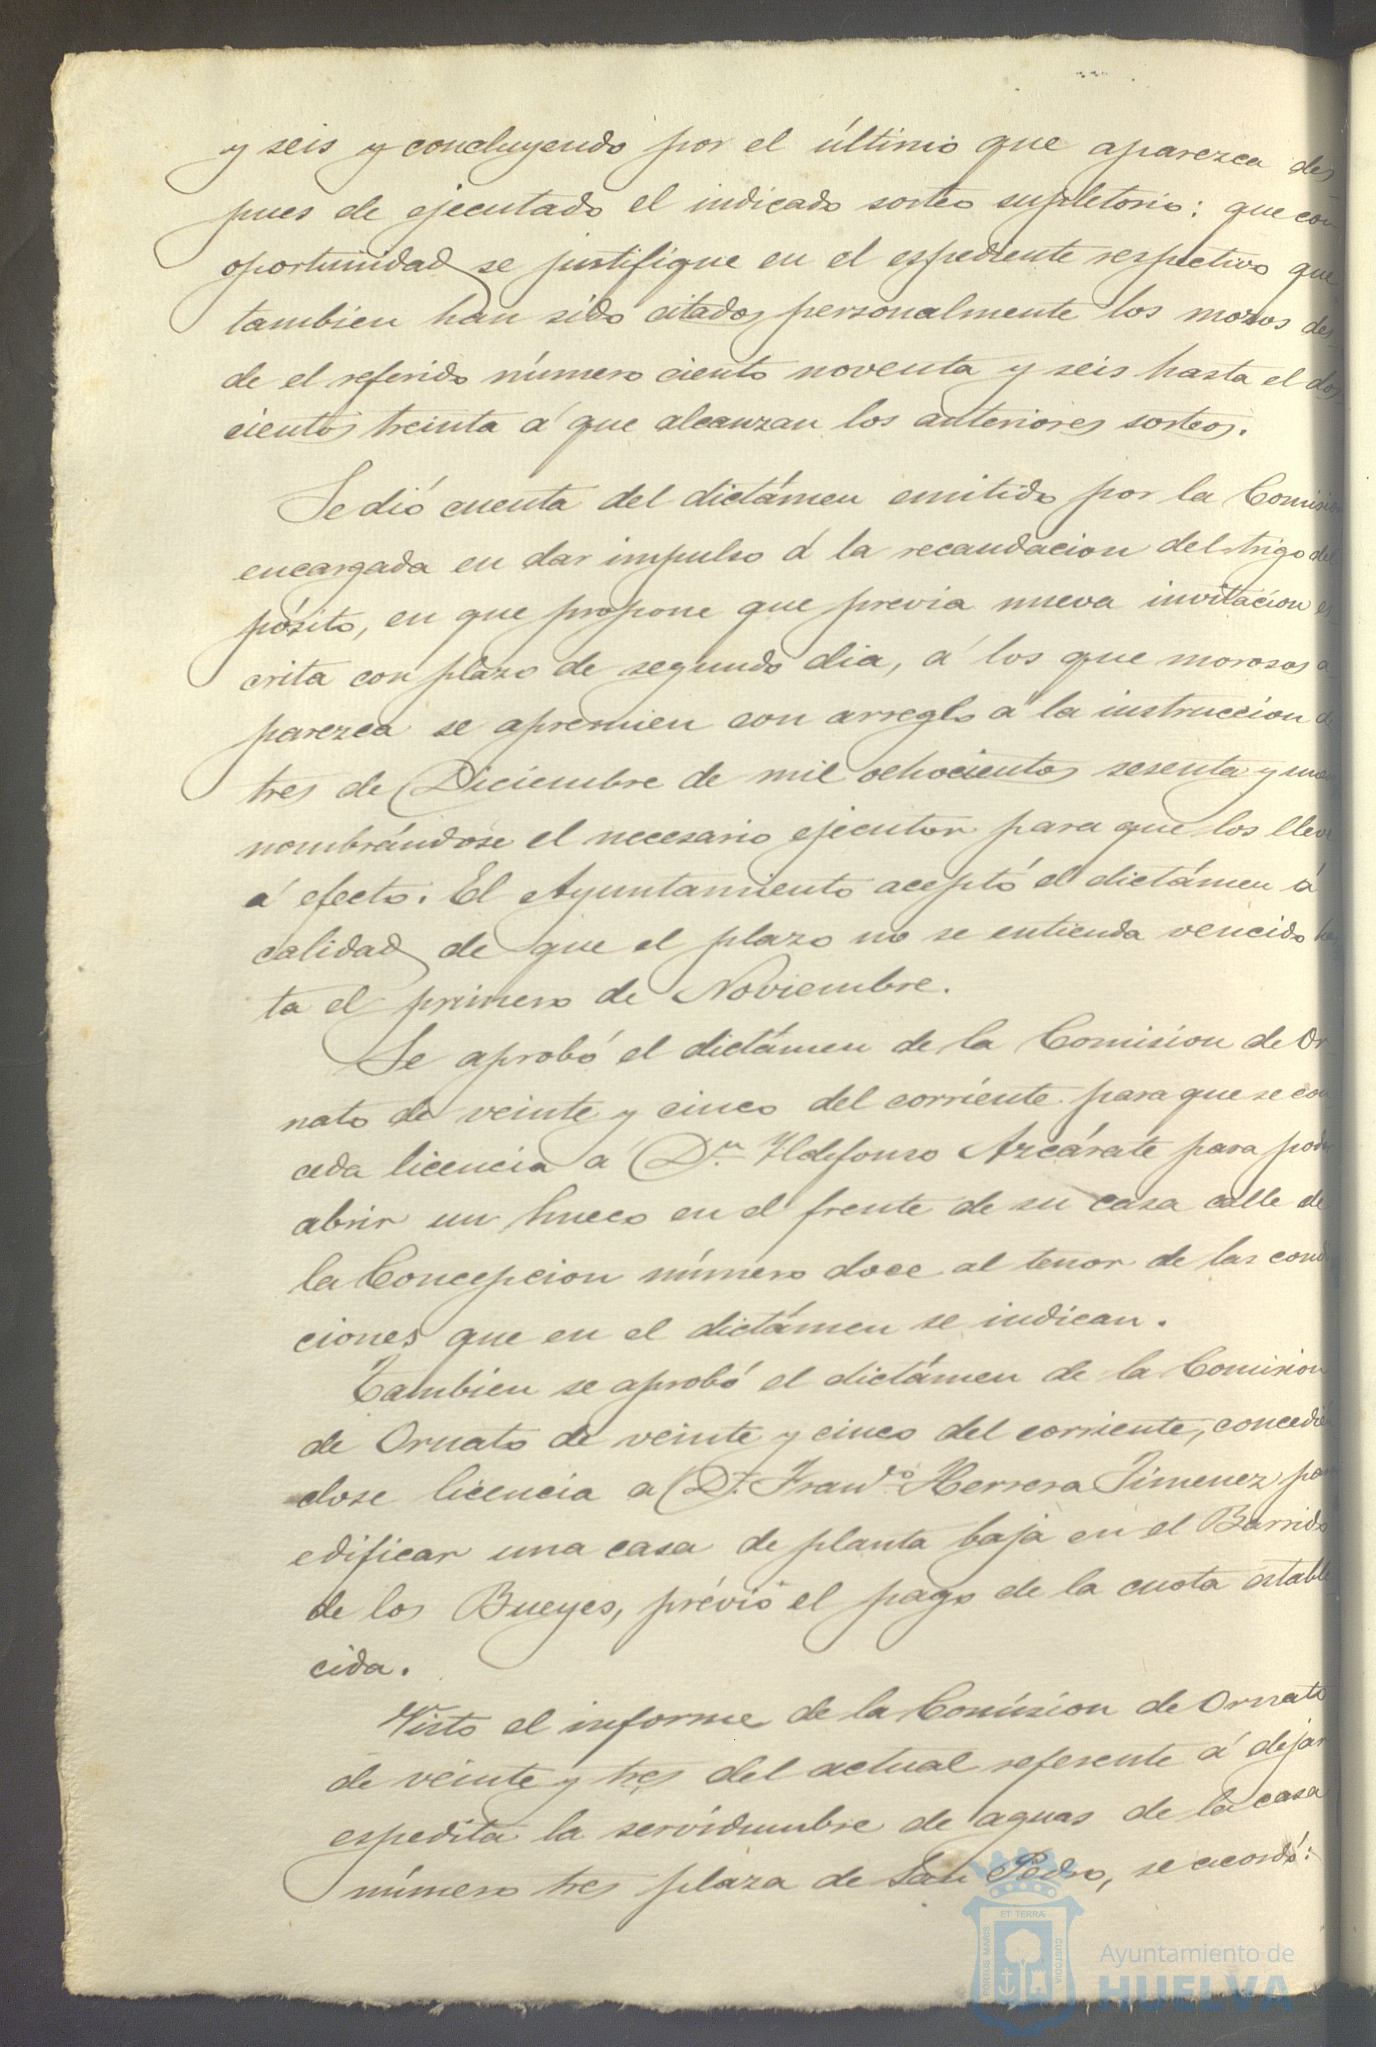 y seis y concluyendo por el último que aparezca des
pues de ejecutado el indicado sorteo supletorio: que con
oportunidad se justifique en el espediente respectivo que
tambien han sido citados personalmente los mozos des
de el referido número ciento noventa y seis hasta el dos
cientos treinta á que alcanzan los anteriores sorteos.
Se dió cuenta del dictámen emitido por la Comision
encargada en dar impulso á la recaudacion del trigo del
pósito, en que propone que previa nueva invitacion es
crita con plazo de segundo dia, á los que morosos a
parezca se apremien con arreglo á la instruccion de
tres de Diciembre de mil ochocientos sesenta y uno
nombrándose el necesario ejecutor para que los lleve
á efecto. El Ayuntamiento aceptó el dictámen á
calidad de que el plazo no se entienda vencido has
ta el primero de Noviembre.
Se aprobó el dictámen de la Comision de Or
nato de veinte y cinco del corriente para que se con
ceda licencia á Dn. Yldefonso Azcárate para poder
abrir un hueco en el frente de su casa calle de
la Concepcion número doce al tenor de las condi
ciones que en el dictámen se indican.
Tambien se aprobó el dictámen de la Comision
de Ornato de veinte y cinco del corriente, concedién
dose licencia a D. Franco. Herrera Jimenez para
edificar una casa de planta baja en el Barrido
de los Bueyes, prévio el pago de la cuota estable
cida.
Visto el informe de la Comision de Ornato
de veinte y tres del actual referente á dejar
espedita la servidumbre de aguas de la casa
número tres plaza de San Pedro, se acordó:
PORTUS MARIS
ET TERRÆ
CUSTODIA
Ayuntamiento de
HUELVA